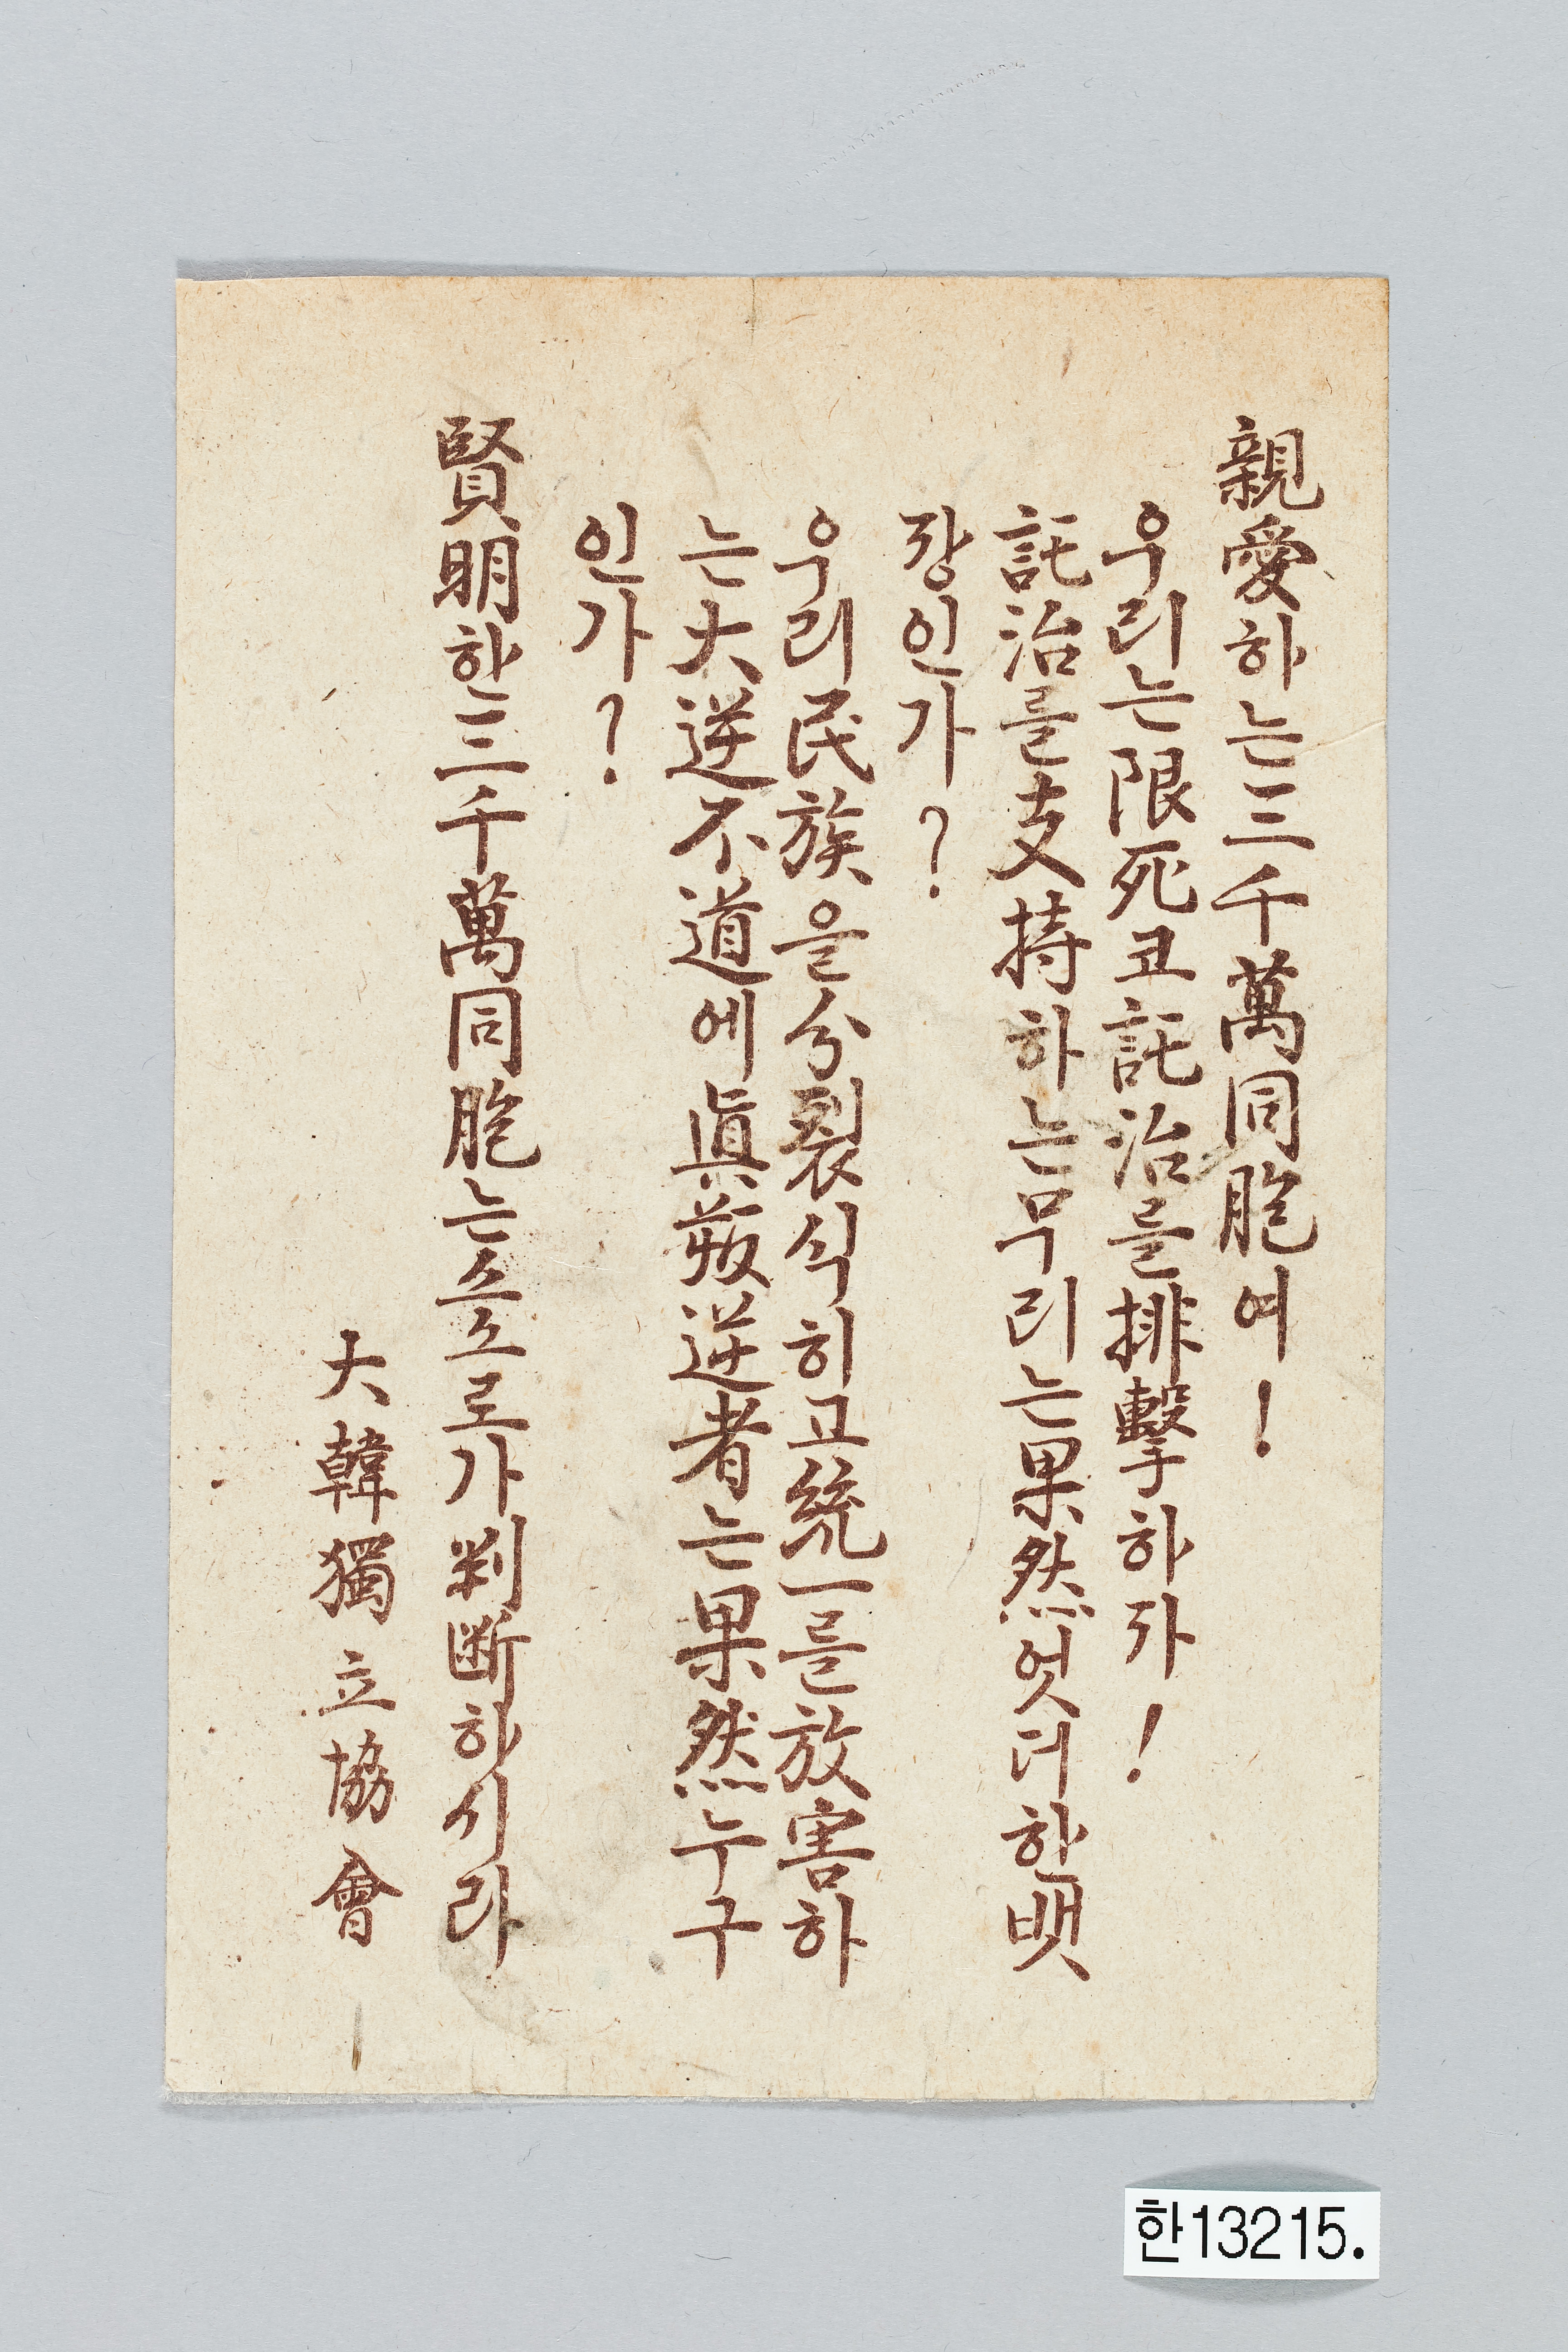 親愛하는三千萬同胞여!
우리는限死코託治를排擊하자!
託治를支持하는무리는果然엇더한뱃
장인가?
우리民族을分裂식히고統一를放害하
는大逆不道에眞叛逆者는果然누구
인가?
賢明한三千萬同胞는스스로가判斷하시라
大韓獨立協會
한13215.